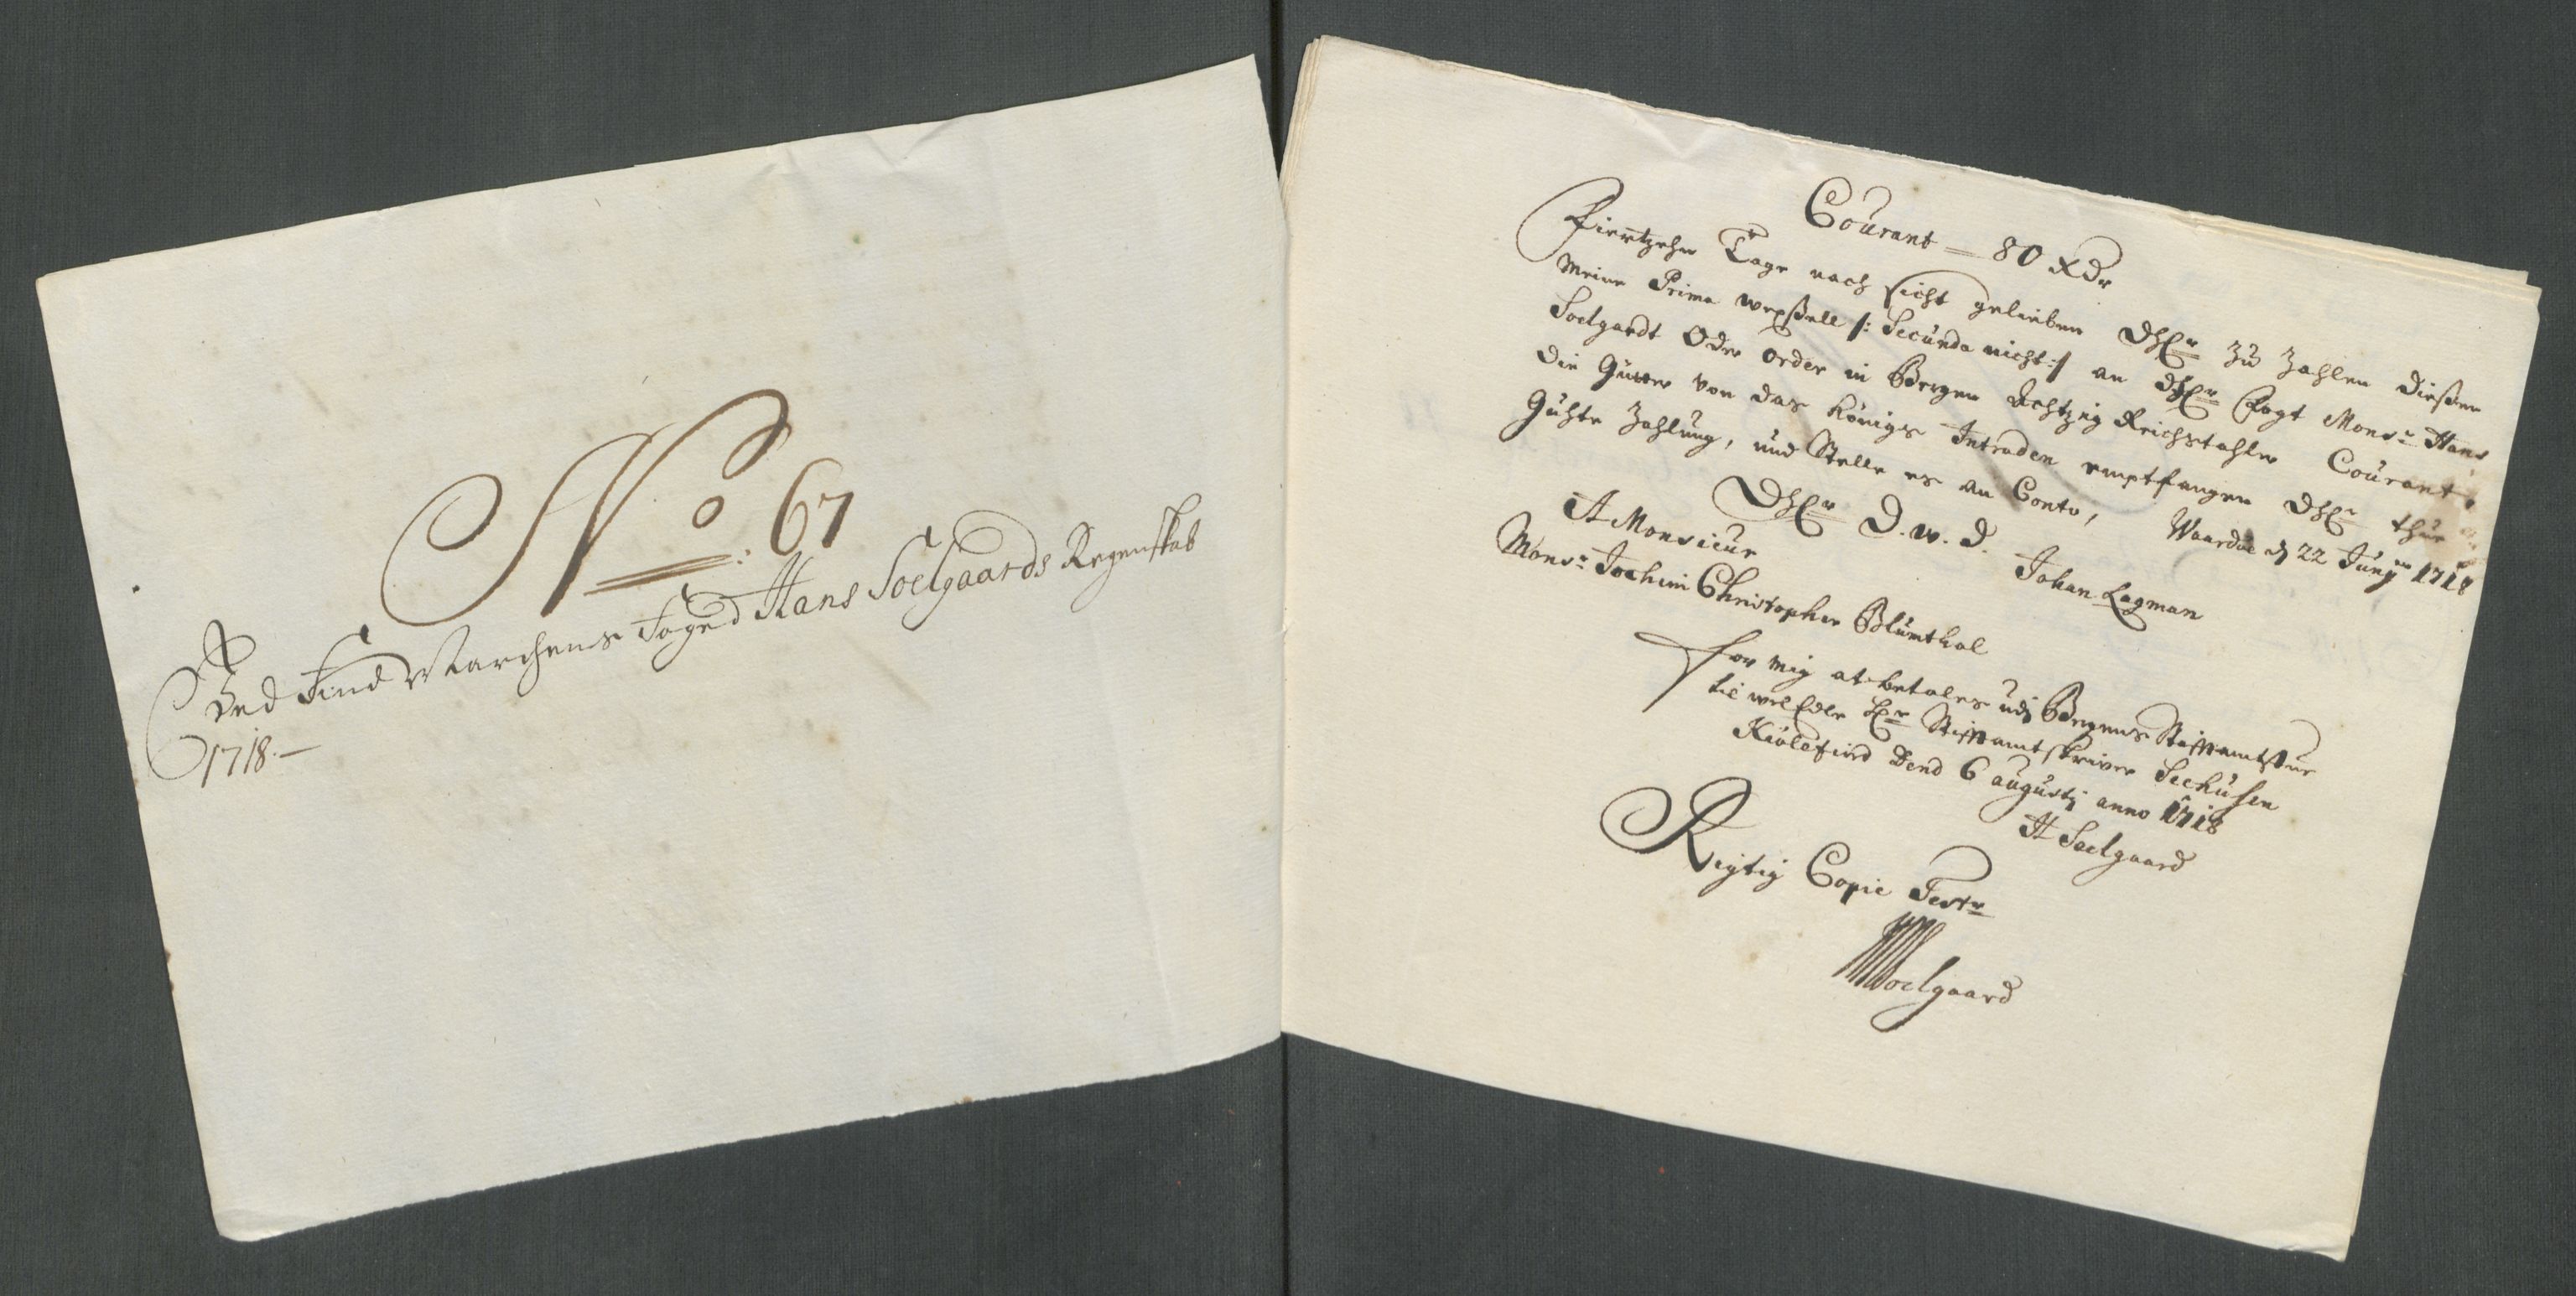 No: 67
Ved Find Marchens Foged Hans Soelgaards Regenskab
1718.—
Courant — 80 Rdr
Vierrtzehn Tage nach sicht gelieben DhHr zu Zahlen dießen
meine Prima wexßell /: Secunda nicht :/ an dhHr Vogt Monsr Hans
Soelgardt Oder order in Bergen Achtzig Reichstahler Courant,
die Gütter von das Königs Intraden emptfangen DhHr thue
Gühte Zahlung, und Stelle es an Conto, Waardøe d 22 Junÿ 1718
DhHr D. w. D.
Johan Lagman
A Monsieur
Monsr Jochim Christopher Blumthal
for mig at betales udj Bergens Stiftamtstue
til welEdle Hr Stiftamtskriver Seehusen
Kiölefiord Dend 6 augustj anno 1718
H Soelgaard
Rigtig Copie Testr
HSoelgaard